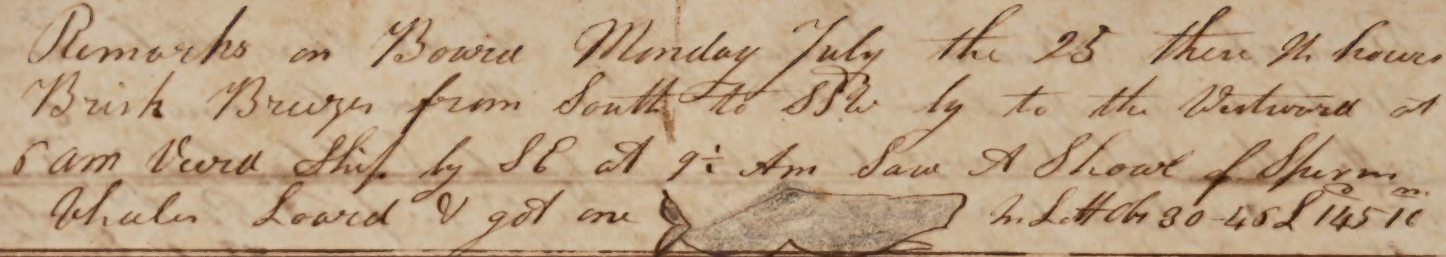 Remarks on Board Monday July the 25 these 24 hours
Brisk Breezes from South to SSW by to the Westward at
5 am Veard Ship by SE at 9½ Am Saw A Shoal of Sperm
Whales Loard & got one Lattd by 30-46 L 145 10